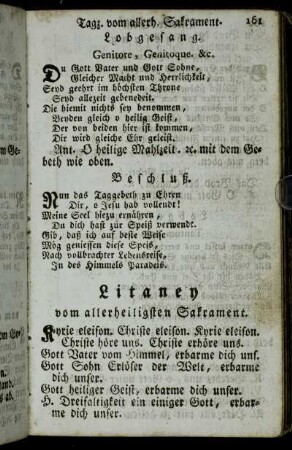 Tagz. vom allerh. Sakrament. 161
Lobgesang.
Genitore, Genitoque. &c.
Du Gott Vater und Gott Sohne,
Gleicher Macht und Herrlichkeit,
Seyd geehrt im höchsten Throne
Seyd allezeit gebenedeit.
Die hiemit nichts sey benommen,
Beyden gleich o heilig Geist,
Der von beiden hier ist kommen,
Dir wird gleiche Ehr geleist.
Ant. O heilige Mahlzeit. ꝛc. mit dem Ge-
beth wie oben.
Beschluß.
Nun das Taggebeth zu Ehren
Dir, o Jesu had vollendt!
Meine Seel hiezu ernähren,
Du dich hast zur Speiß verwendt.
Gib, daß ich auf beste Weise
Mög geniessen diese Speis,
Nach vollbrachter Lebensreise,
In des Himmels Paradeis.
Litaney
vom allerheiligsten Sakrament.
Kyrie eleison. Christe eleison. Kyrie eleison.
Christe höre uns. Christe erhöre uns.
Gott Vater vom Himmel, erbarme dich uns.
Gott Sohn Erlöser der Welt, erbarme
dich unser.
Gott heiliger Geist, erbarme dich unser.
H. Dreifaltigkeit ein einiger Gott, erbar-
me dich unser.